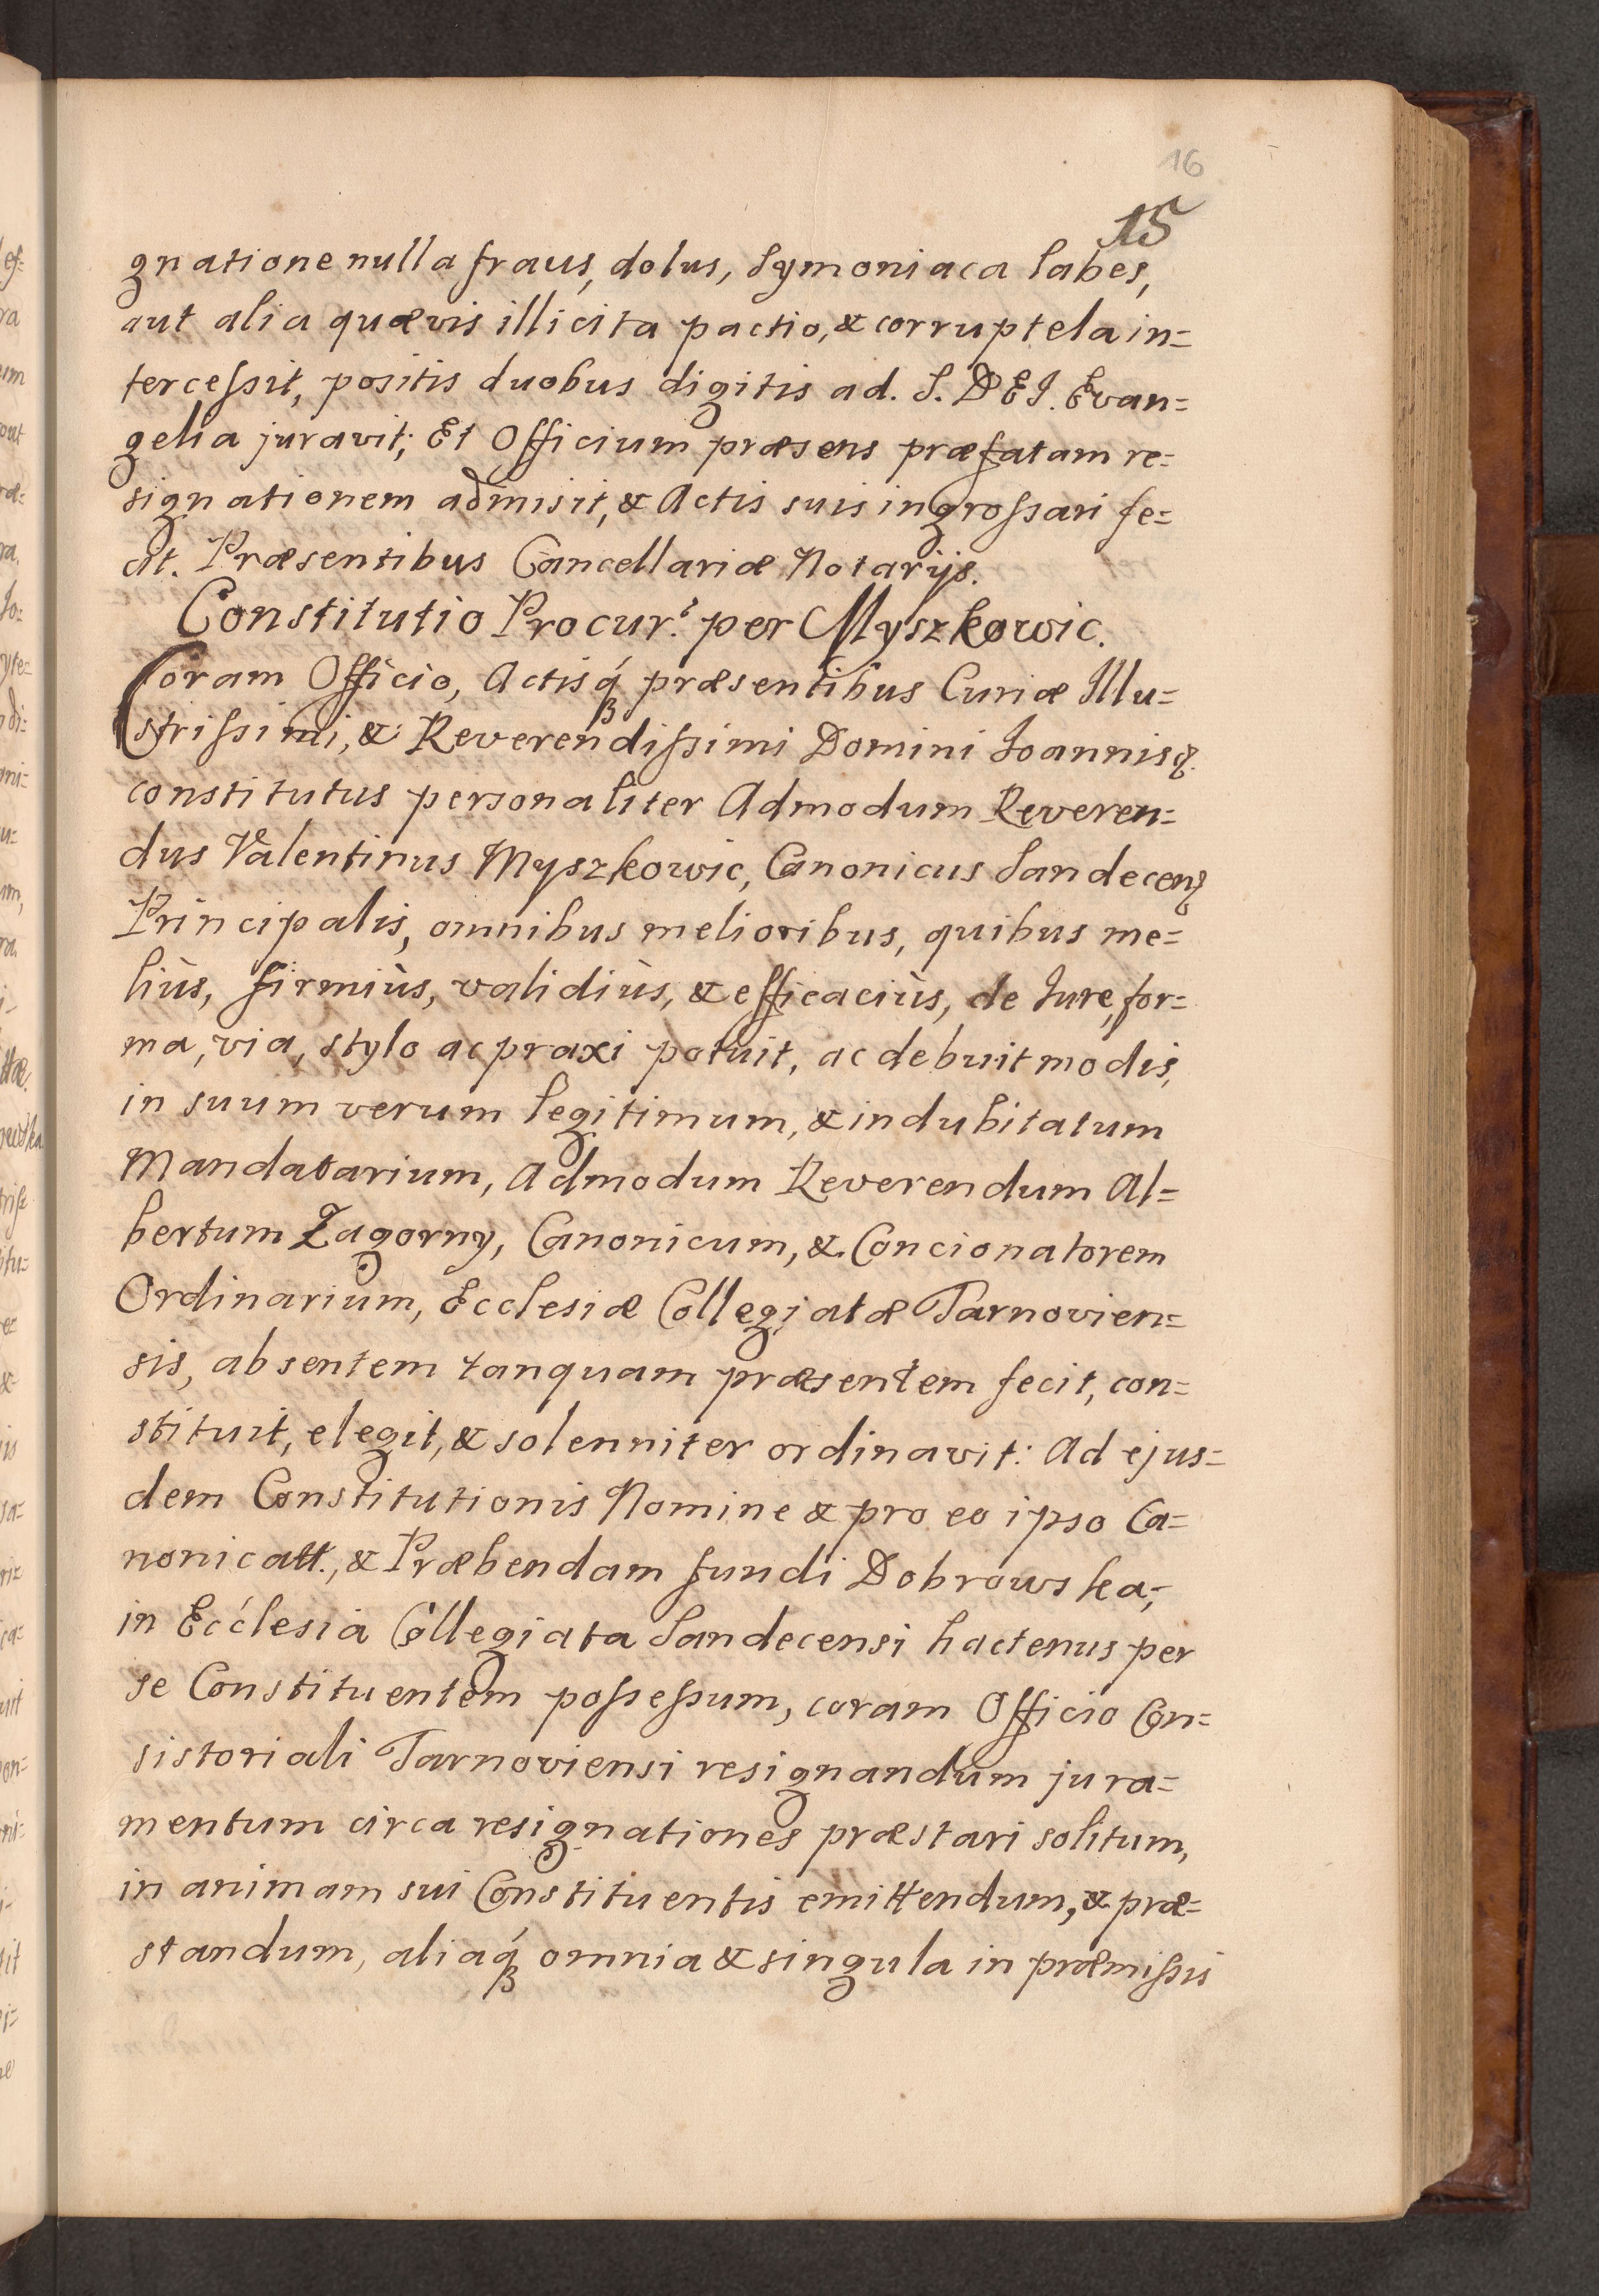 16
15
gnatione nulla fraus, dolus, Symoniaca labes,
aut alia quævis illicita pactio, & corruptela in=
tercessit, positis duobus digitis ad. S. DEI. Evan=
gelia juravit; Et Officium præsens præfatam re=
signationem admisit, & Actis suis ingrossari fe=
cit. Præsentibus Cancellariæ Notarijs.
Constitutio Procur. per Myszkowic.
Coram Officio, Actisq́ præsentibus Curiæ Illu=
strissimi, & Reverendissimi Domini Joannis &.
constitutus personaliter Admodum Reveren=
dus Valentinus Myszkowic, Canonicus Sandecenꝫ
Principalis, omnibus melioribus, quibus me=
liùs, firmiùs, validiùs, & efficaciùs, de Jure, for=
ma, via, stylo ac praxi potuit, ac debuit modis,
in suum verum legitimum, & indubitatum
Mandatarium, Admodum Reverendum Al=
bertum Zagorny, Canonicum, & Concionatorem
Ordinarium, Ecclesiæ Collegiatæ Tarnovien=
sis, absentem tanquam præsentem fecit, con=
stituit, elegit, & solenniter ordinavit: Ad ejus=
dem Constitutionis Nomine & pro eo ipso Ca=
nonicatt., & Præbendam fundi Dobrowska;
in Ecclesia Collegiata Sandecensi hactenus per
se Constituentem possessum, coram Officio Con=
sistoriali Tarnoviensi resignandum jura=
mentum circa resignationes præstari solitum,
in animam sui Constituentis emittendum, & præ=
standum, aliaq́ omnia & singula in præmissis